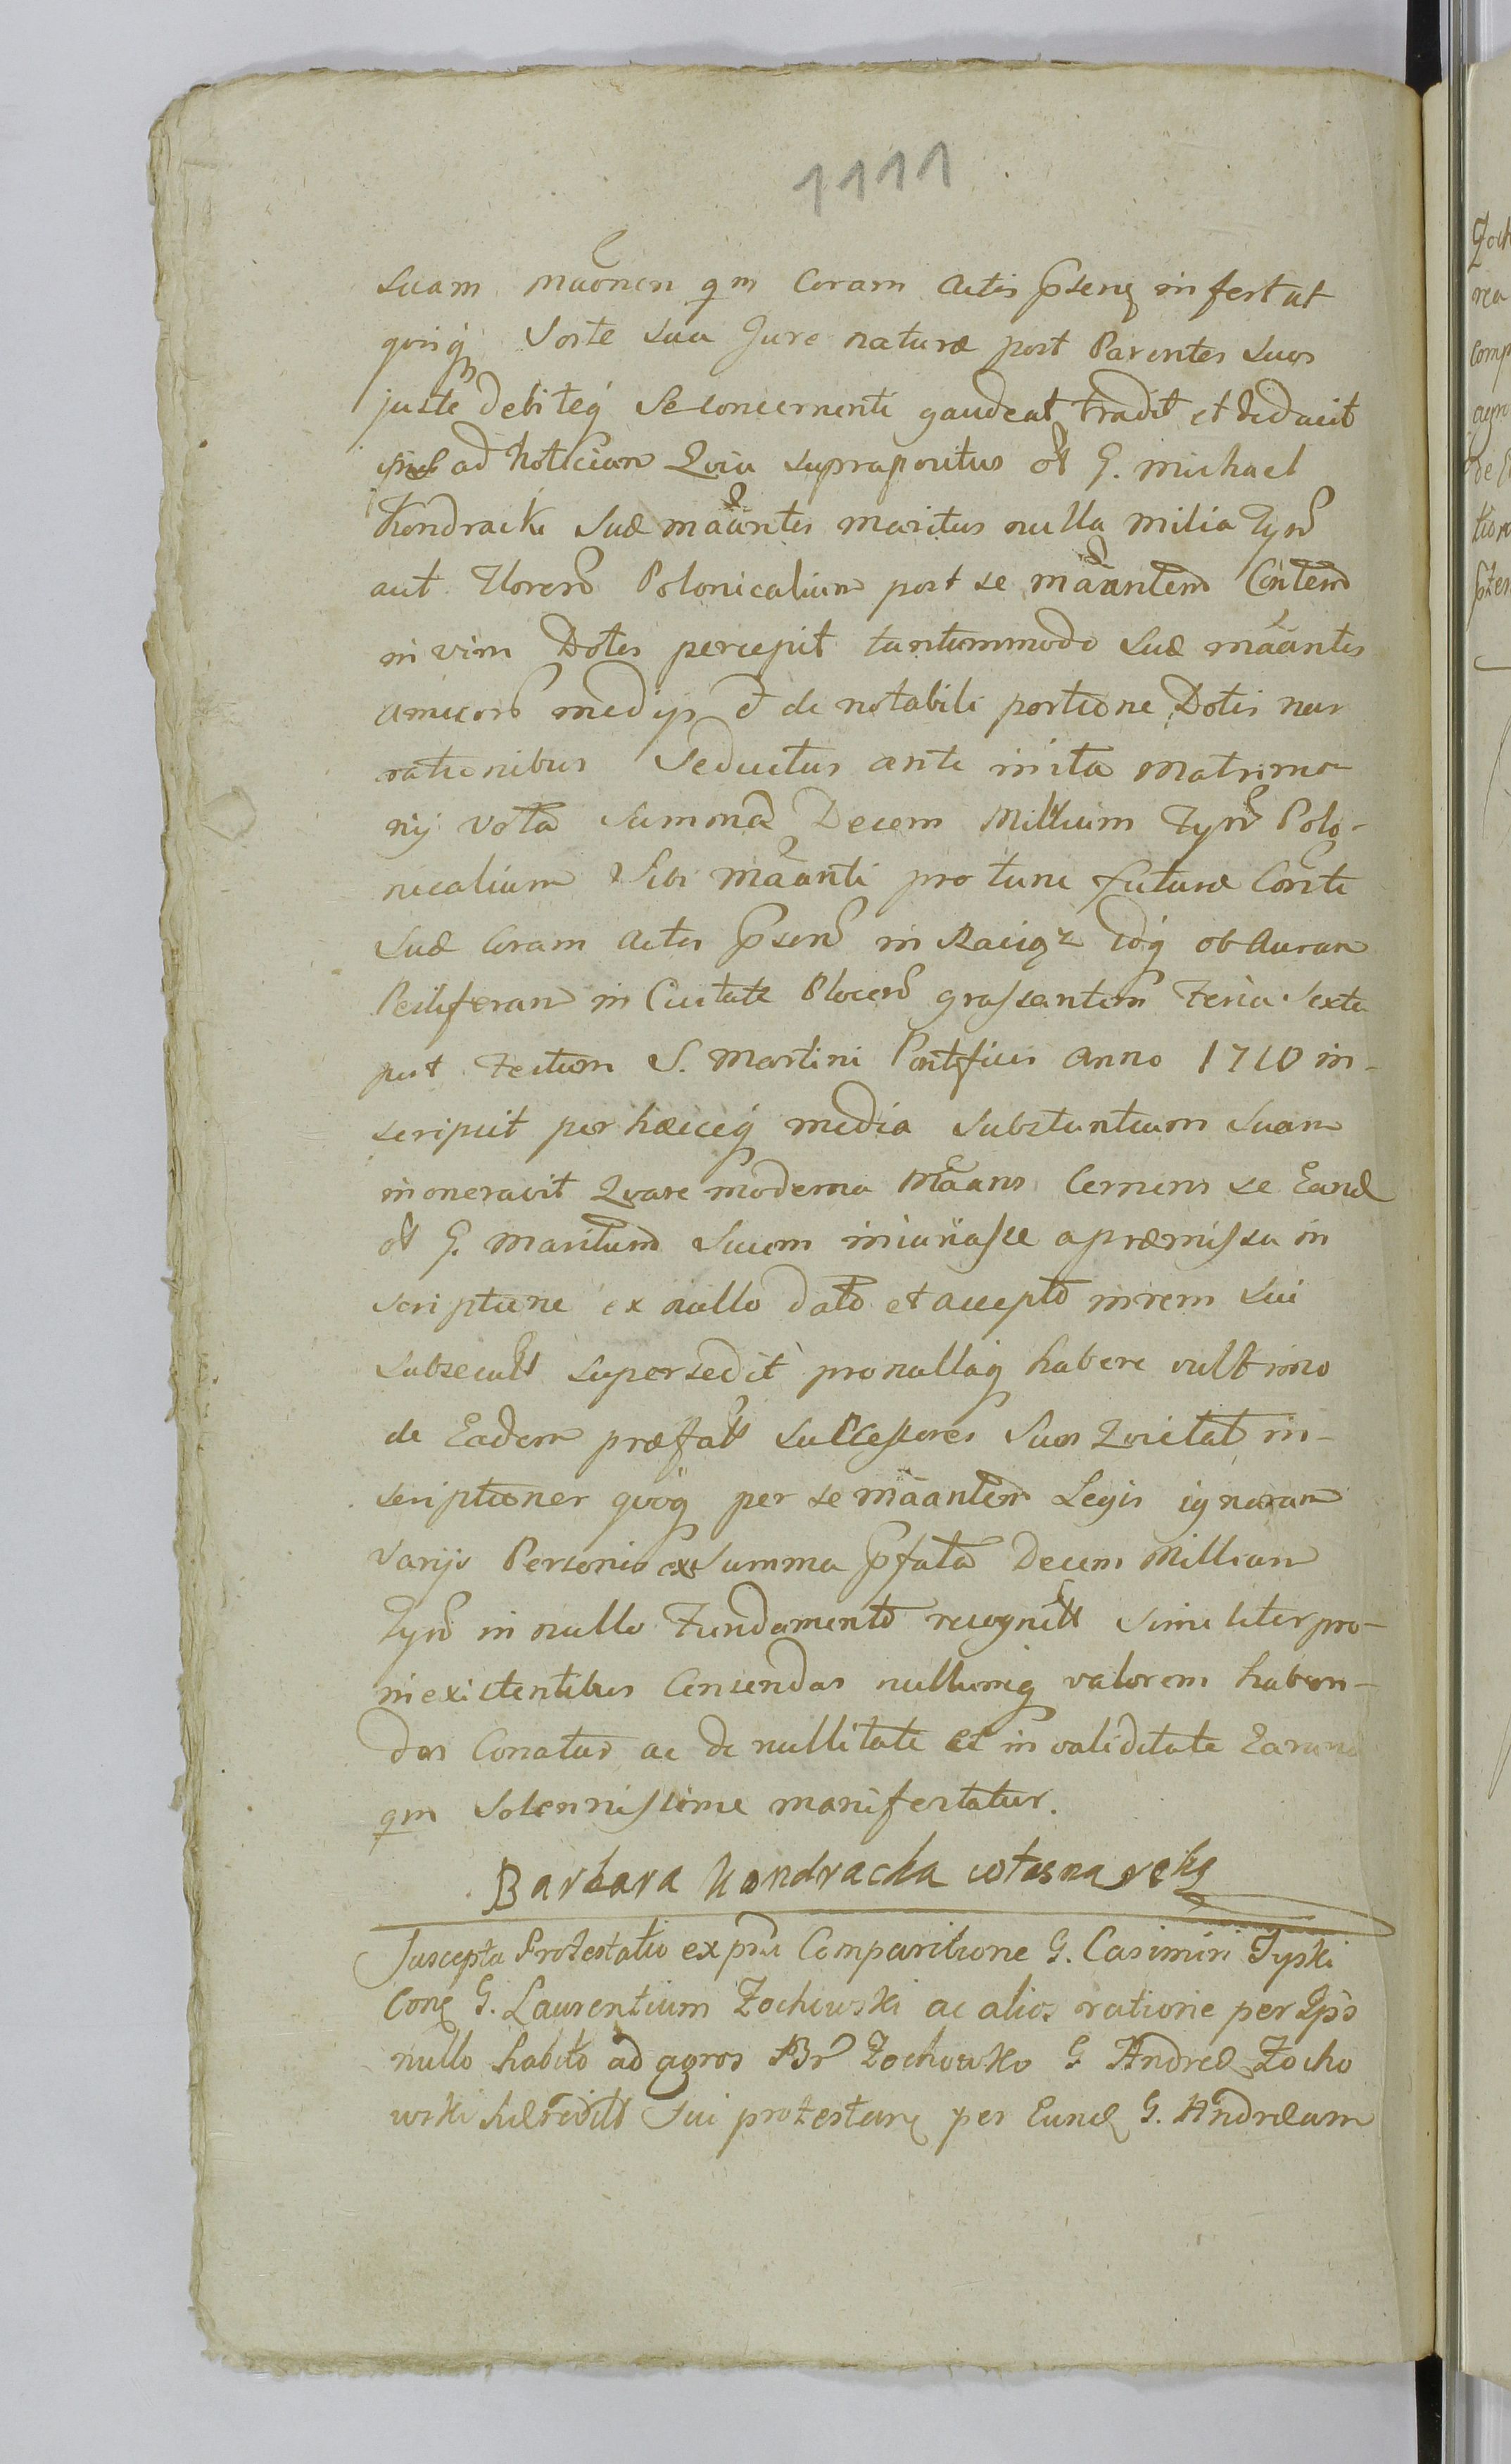 1111
suam mãonen qm Coram Actis psenq infert ut
quisq Sorte sua Jure naturæ post Parentes suos
juste debiteq se concernenti gaudeat tradit et deducit
ad noticiam Quia suprapositus oł G. Michael
Kondracki suæ mãantis maritus nulla milia Typo
aut Florenõ Polonicalium post se mãantem Contem
in vim Dotis percepit tantummodo suæ mãantis
amicorõ medijs de notabili portione Dotis nar
rationibus Seductus ante inita Matrimo
nij vota summã Decem Millium Typõ Polo-
nicalium Sibi mãanti pro tunc futuræ Conti
suæ Coram Actis psenõ in Raciąz idq ob Auram
Pestiferam in Civitate Plocenõ grassantem Feria Sexta
post Festum S. Martini Pontificis Anno 1710 in-
scripsit per hæcceq media Substantiam Suam
inoneravit Quare moderna Mãans Cernens se Eand
oł G. Maritum suum iniuriasse a præmissa in
scriptione ex nullo dato et accepto in rem sui
subsecutt supersedit pro nullaq habere vult imo
de Eadem præfatt Successores suos Quietat in-
scriptiones quoq per se mãantem Legis ignaram
Varijs Personis ex Summa pfata Decem Millium
Typõ in nullo Fundamento recognitt Similiter pro-
inexistentibus Censendas nullumq valorem haben-
das Conatur ac de nullitate et in validitate Earund
qm Solennissime manifestatur.
Barbara Kondracka własna ręką
Suscepta Protestatio ex psnti Comparitione G. Casimiri Tyski
Conq G. Laurentium Żochowski ac alios ratione per Ips
nullo habito ad agros Br Żochowko G Andreæ Żocho
wski Sui protestanq per Eund G. Andream